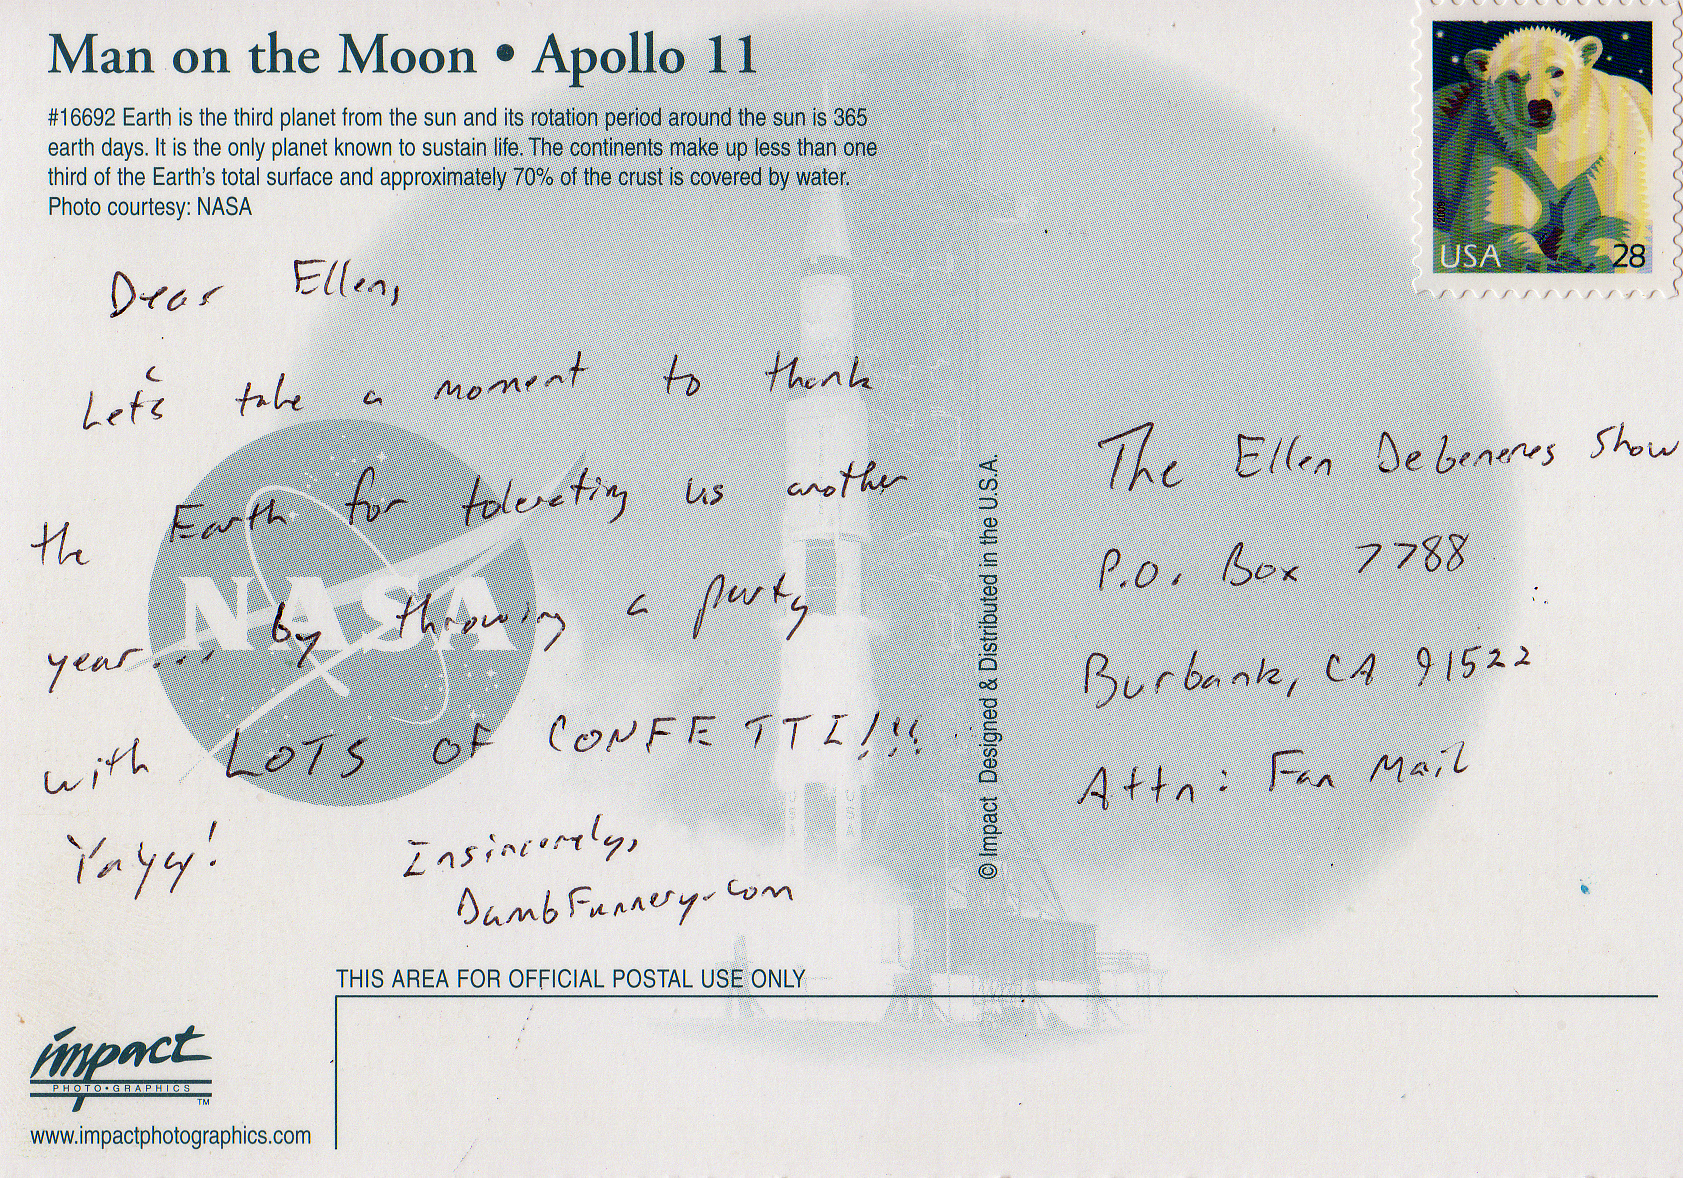 Man on the Moon • Apollo 11
#16692 Earth is the third planet from the sun and its rotation period around the sun is 365
earth days. It is the only planet known to sustain life. The continents make up less than one
third of the Earth's total surface and approximately 70% of the crust is covered by water.
Photo courtesy: NASA
USA 28
Dear Ellen,
Let's take a moment to thank
the Earth for tolerating us another
year... by throwing a party
with LOTS OF CONFETTI!!!
Yayy!
Insincerely,
DumbFunnery.com
NASA
© Impact Designed & Distributed in the U.S.A.
The Ellen Degeneres Show
P.O. Box 7788
Burbank, CA 91522
Attn: Fan Mail
THIS AREA FOR OFFICIAL POSTAL USE ONLY
impact
PHOTO•GRAPHICS
TM
www.impactphotographics.com